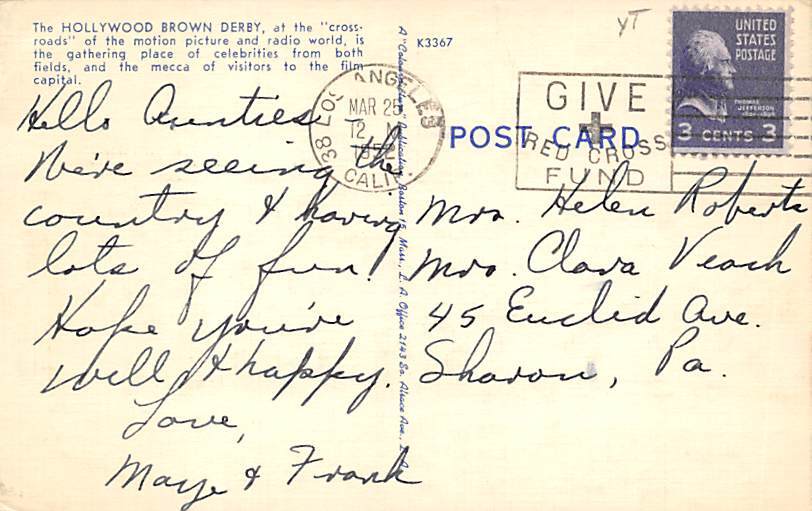 The HOLLYWOOD BROWN DERBY, at the "cross-
roads" of the motion picture and radio world, is
the gathering place of celebrities from both
fields, and the mecca of visitors to the film
capital.
Hello Aunties
We're seeing the
country & having
lots of fun!
Hope you're
well & happy.
Love,
Marge & Frank
K3367
LOS ANGELES 38
MAR 25
12 M
CALIF.
GIVE
RED CROSS
FUND
UNITED
STATES
POSTAGE
THOMAS
JEFFERSON
3 CENTS 3
POST CARD
Mrs. Helen Roberts
Mrs. Clara Veach
45 Euclid Ave.
Sharon, Pa.
Publication, Boston 15, Mass., L. A. Office 2143 So. Alsace Ave., L. A.